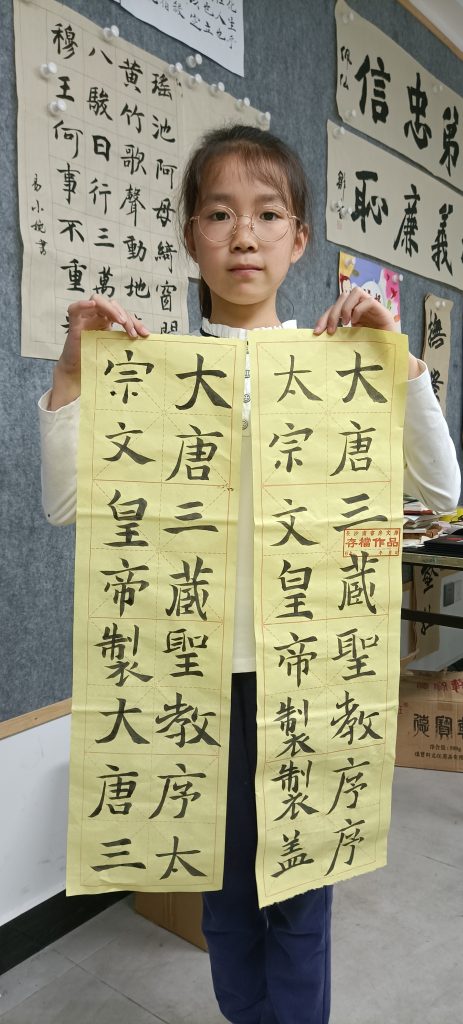 瑤池阿母綺窗
黄竹歌聲動地
八駿日行三萬
穆王何事不重
弟忠信
義廉恥
大唐三藏聖教序序
太宗文皇帝製製盖
存檔作品
大唐三蔵聖教序太
宗文皇帝製大唐三